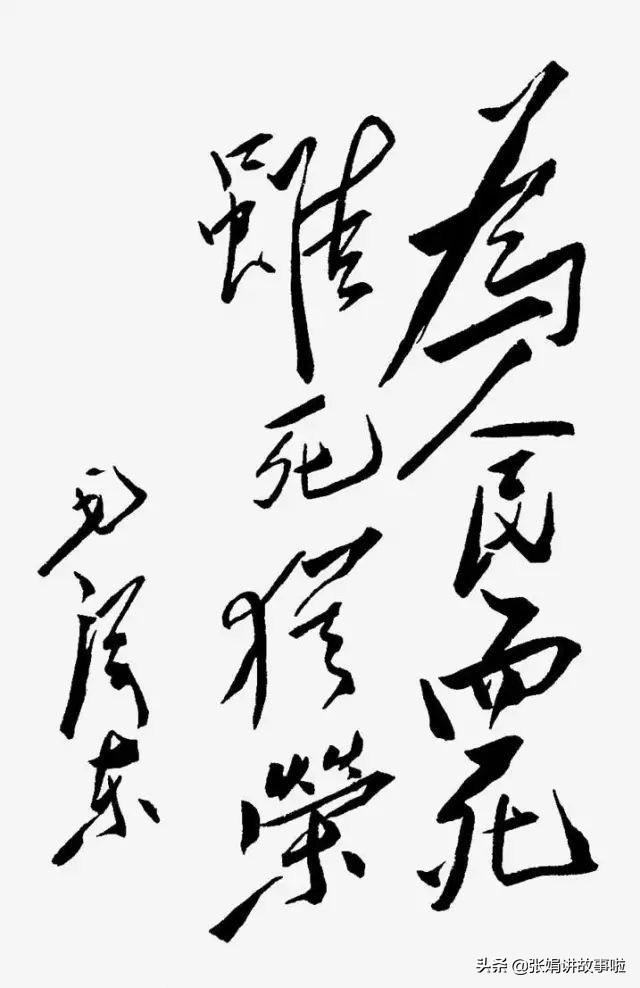 為人民而死
雖死猶榮
毛澤东
头条 @张娟讲故事啦